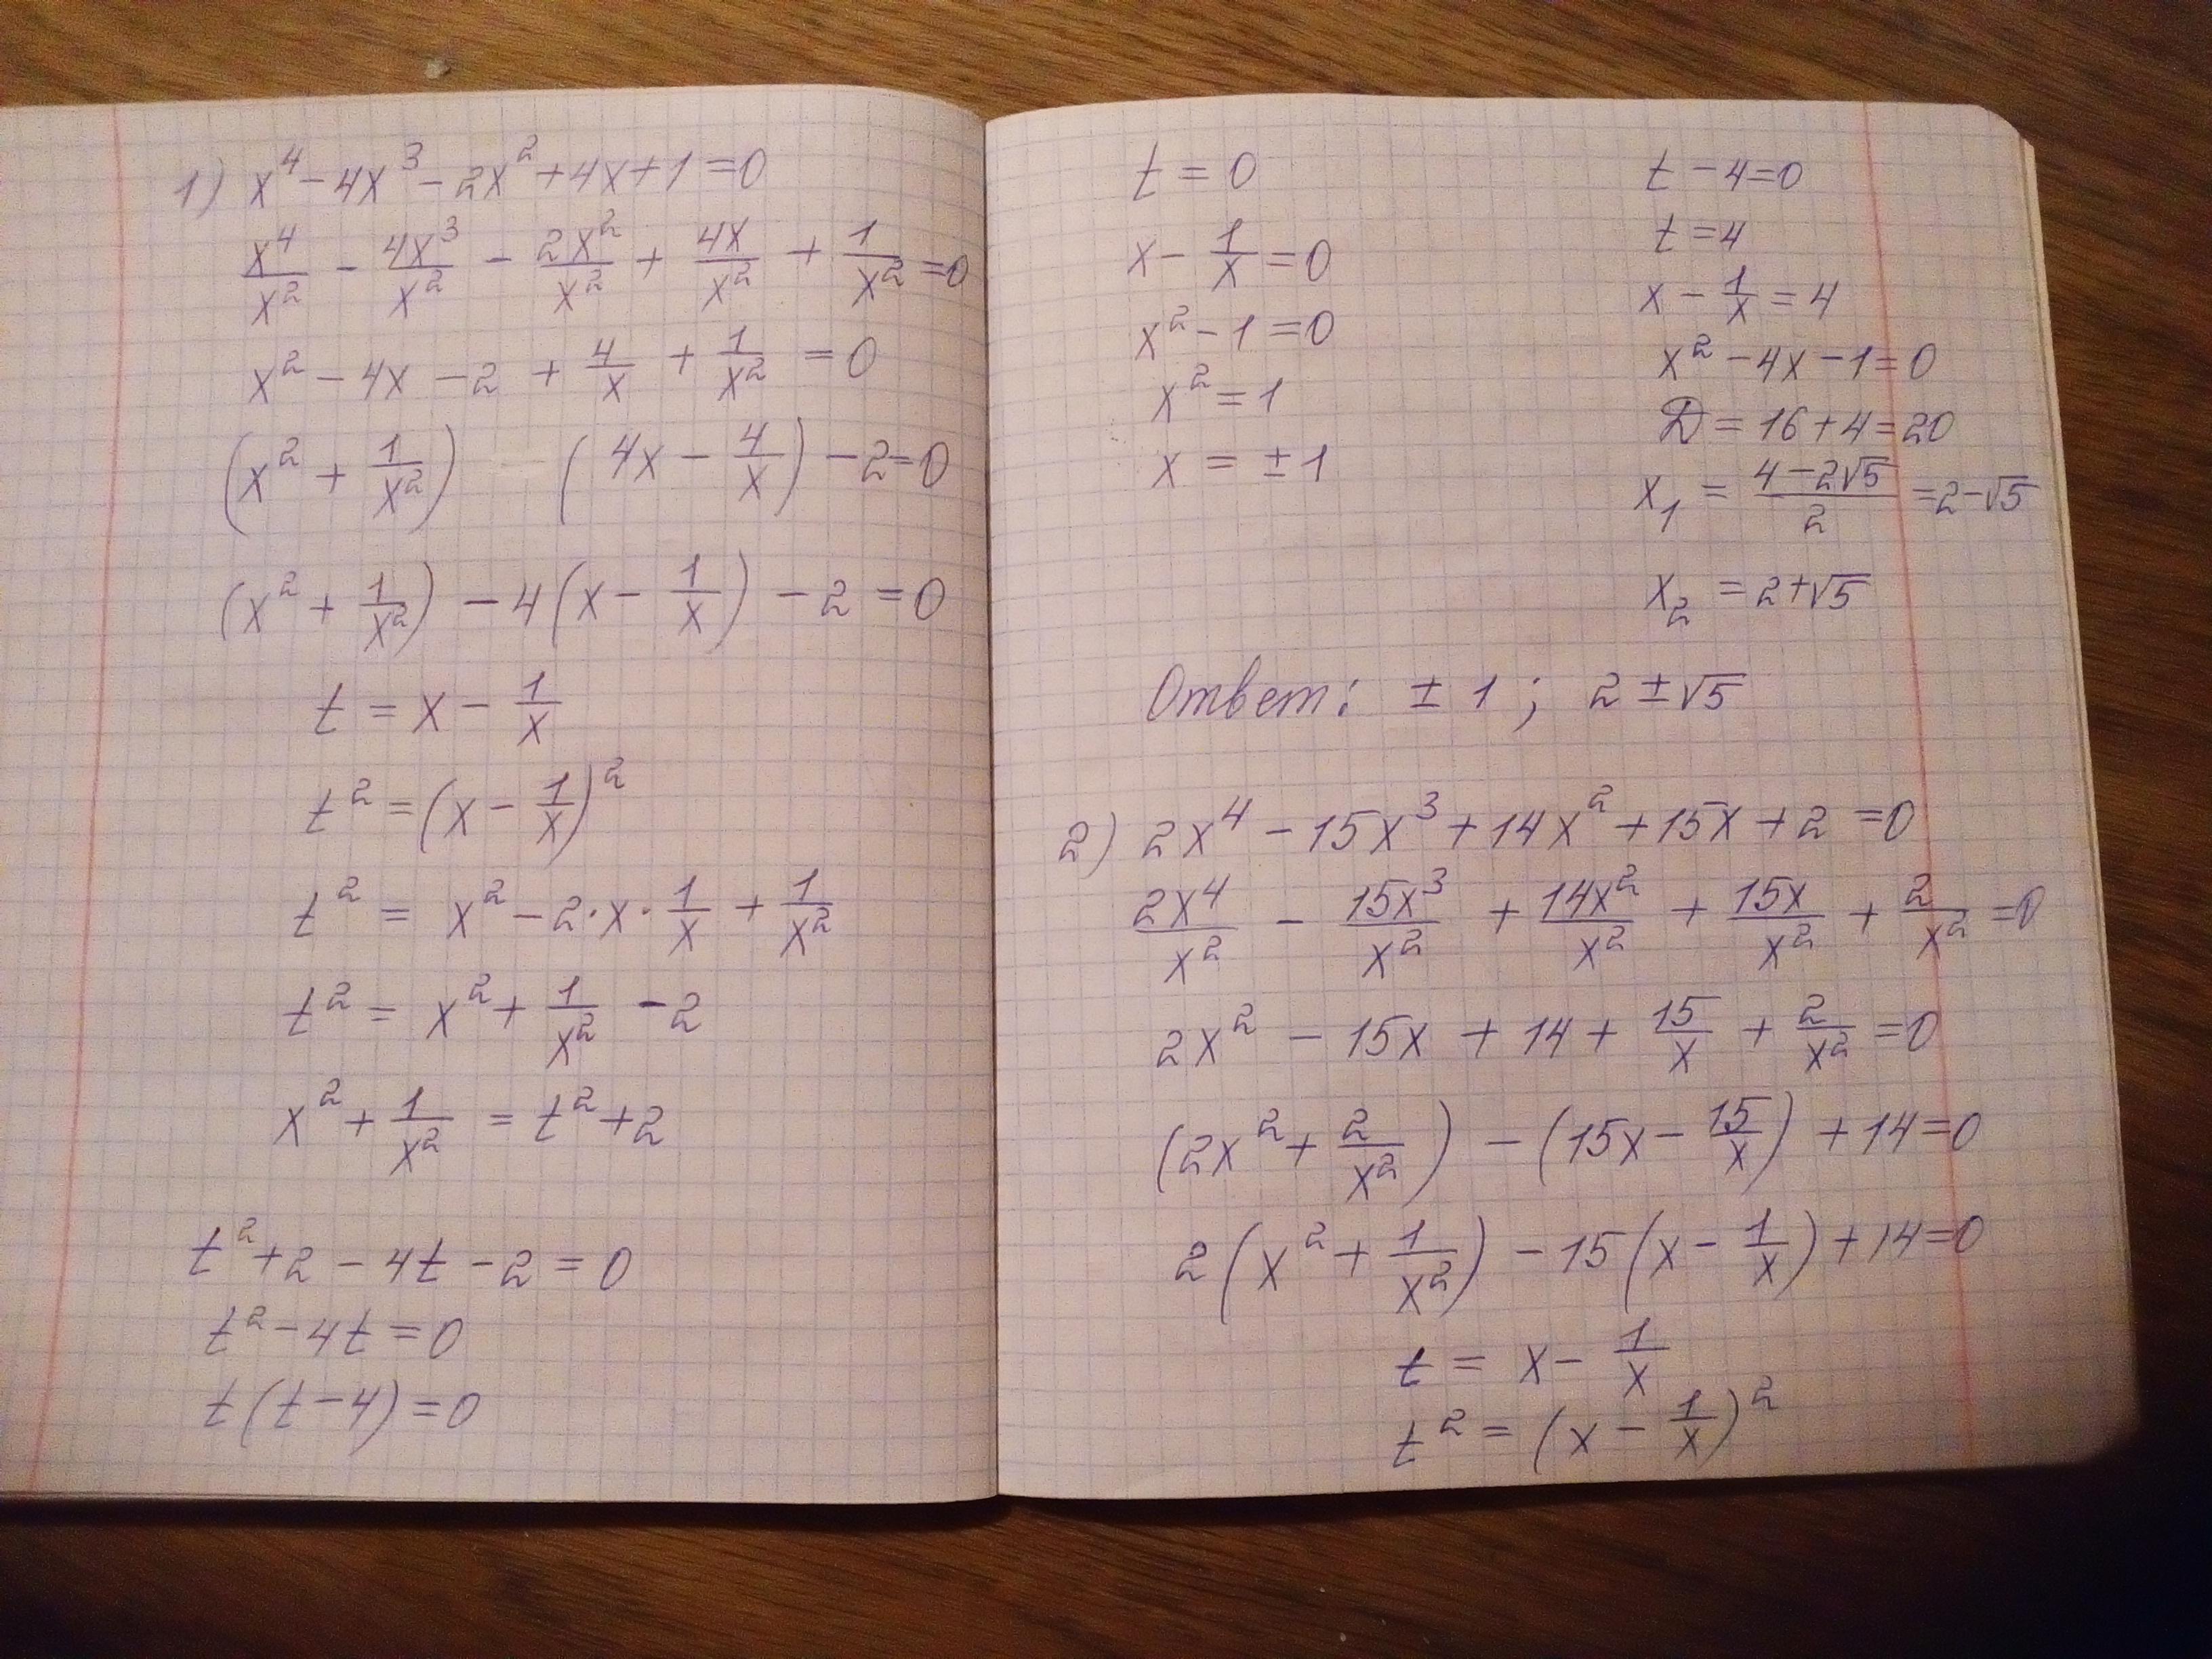 1) x⁴ - 4x³ - 2x² + 4x + 1 = 0
x⁴/x² - 4x³/x² - 2x²/x² + 4x/x² + 1/x² = 0
x² - 4x - 2 + 4/x + 1/x² = 0
(x² + 1/x²) - (4x - 4/x) - 2 = 0
(x² + 1/x²) - 4(x - 1/x) - 2 = 0
t = x - 1/x
t² = (x - 1/x)²
t² = x² - 2·x·1/x + 1/x²
t² = x² + 1/x² - 2
x² + 1/x² = t² + 2
t² + 2 - 4t - 2 = 0
t² - 4t = 0
t(t - 4) = 0
t = 0
x - 1/x = 0
x² - 1 = 0
x² = 1
x = ±1
t - 4 = 0
t = 4
x - 1/x = 4
x² - 4x - 1 = 0
D = 16 + 4 = 20
x₁ = (4 - 2√5)/2 = 2 - √5
x₂ = 2 + √5
Ответ: ± 1 ; 2 ± √5
2) 2x⁴ - 15x³ + 14x² + 15x + 2 = 0
2x⁴/x² - 15x³/x² + 14x²/x² + 15x/x² + 2/x² = 0
2x² - 15x + 14 + 15/x + 2/x² = 0
(2x² + 2/x²) - (15x - 15/x) + 14 = 0
2(x² + 1/x²) - 15(x - 1/x) + 14 = 0
t = x - 1/x
t² = (x - 1/x)²